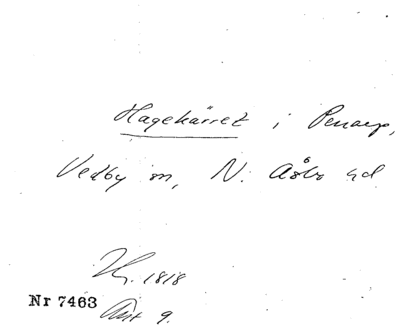 Hagekärret i Penarp,
Vedby sn, N. Åsbo hd
1818
Nr 7463
Akt 9.